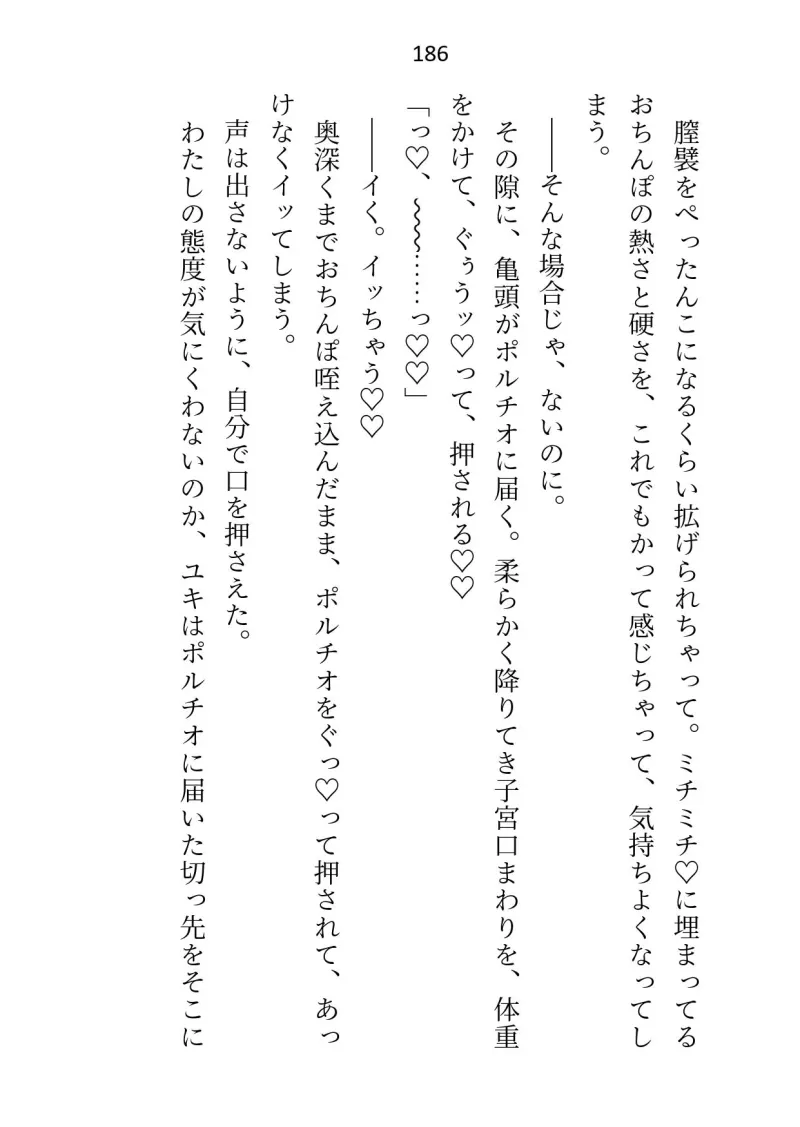 186
膣襞をぺったんこになるくらい拡げられちゃって。ミチミチ♡に埋まってる
おちんぽの熱さと硬さを、これでもかって感じちゃって、気持ちよくなってし
まう。
――そんな場合じゃ、ないのに。
その隙に、亀頭がポルチオに届く。柔らかく降りてき子宮口まわりを、体重
をかけて、ぐぅうッ♡って、押される♡♡
「っ♡、～～……っ♡♡」
――イく。イッちゃう♡♡
奥深くまでおちんぽ咥え込んだまま、ポルチオをぐっ♡って押されて、あっ
けなくイッてしまう。
声は出さないように、自分で口を押さえた。
わたしの態度が気にくわないのか、ユキはポルチオに届いた切っ先をそこに